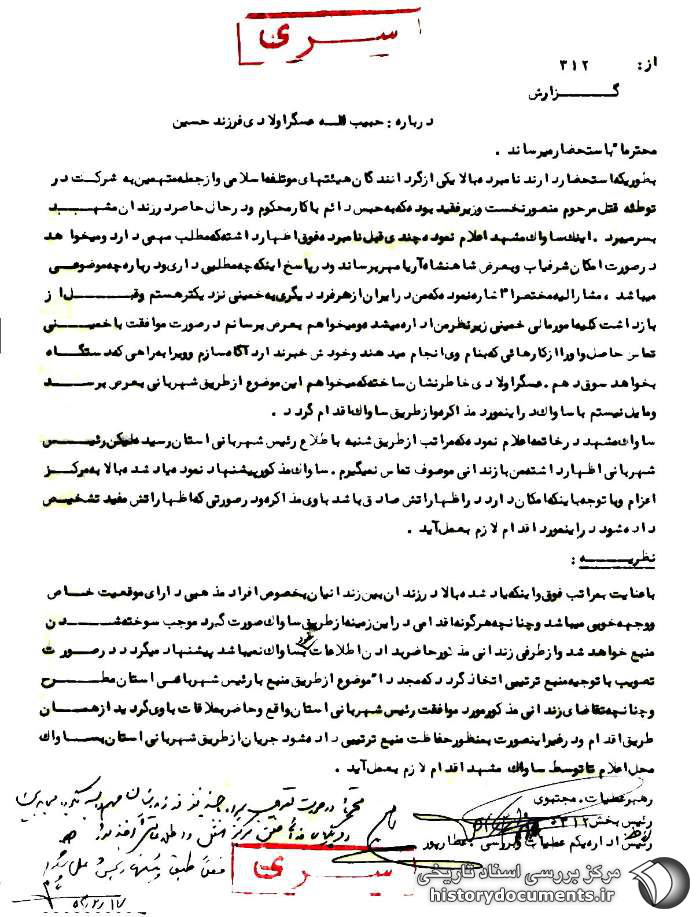 سری
از: ۳۱۲
گـــزارش
درباره: حبیب الله عسگراولادی فرزند حسین
محترما" باستحضار میرساند .
بطوریکه استحضار دارند نامبرده بالا یکی از گردانندگان هیئتهای موتلفه اسلامی و از جمله متهمین به شرکت در
توطئه قتل مرحوم منصور نخست وزیر فقید بوده که به حبس دائم با کار محکوم و در حال حاضر در زندان مشهد
بسر میبرد . اینک ساواک مشهد اعلام نموده چندی قبل نامبرده فوق اظهار داشته که مطلب مهمی دارد و میخواهد
در صورت امکان شرفیاب و بعرض شاهنشاه آریامهر برساند و در پاسخ اینکه چه مطلبی داری و درباره چه موضوعی
میباشد ، مشارالیه مختصرا" اشاره نموده که من در ایران از هر فرد دیگری به خمینی نزدیکتر هستم و قبل از
بازداشت کلیه امور مالی خمینی زیر نظر من اداره میشده و میخواهم بعرض برسانم در صورت موافقت با خمینی
تماس حاصل و او را از کارهائی که بنام وی انجام میدهند و خودش خبر ندارد آگاه سازم و ویرا براهی که دستگاه
بخواهد سوق دهم . عسگراولادی خاطرنشان ساخته که میخواهم این موضوع از طریق شهربانی بعرض برسد
و مایل نیستم با ساواک در اینمورد مذاکره و از طریق ساواک اقدام گردد .
ساواک مشهد در خاتمه اعلام نموده که مراتب از طریق شنبه باطلاع رئیس شهربانی استان رسیده لیکن رئیس
شهربانی اظهار داشته من با زندانی موصوف تماس نمیگیرم . ساواک مذکور پیشنهاد نموده یاد شده بالا به مرکز
اعزام و با توجه باینکه امکان دارد در اظهاراتش صادق باشد با وی مذاکره و در صورتی که اظهاراتش مفید تشخیص
داده شود در اینمورد اقدام لازم بعمل آید .
نظریـــه :
با عنایت بمراتب فوق و اینکه یاد شده بالا در زندان بین زندانیان بخصوص افراد مذهبی دارای موقعیت خاص
و وجهه خوبی میباشد و چنانچه هرگونه اقدامی در این زمینه از طریق ساواک صورت گیرد موجب سوخته شدن
منبع خواهد شد و از طرفی زندانی مذکور حاضر بدادن اطلاعات بساواک نمیباشد پیشنهاد میگردد در صورت
تصویب با توجیه منبع ترتیبی اتخاذ گردد که مجددا" موضوع از طریق منبع با رئیس شهربانی استان مطرح
و چنانچه تقاضای زندانی مذکور مورد موافقت رئیس شهربانی استان واقع و حاضر بملاقات با وی گردید از همان
طریق اقدام و در غیر اینصورت بمنظور حفاظت منبع ترتیبی داده شود جریان از طریق شهربانی استان بساواک
محل اعلام تا توسط ساواک مشهد اقدام لازم بعمل آید .
رهبر عملیات . مجتبوی
رئیس بخش ۳۱۲
رئیس اداره یکم عملیات و بررسی . عطارپور
سری
مرکز بررسی اسناد تاریخی
historydocuments.ir